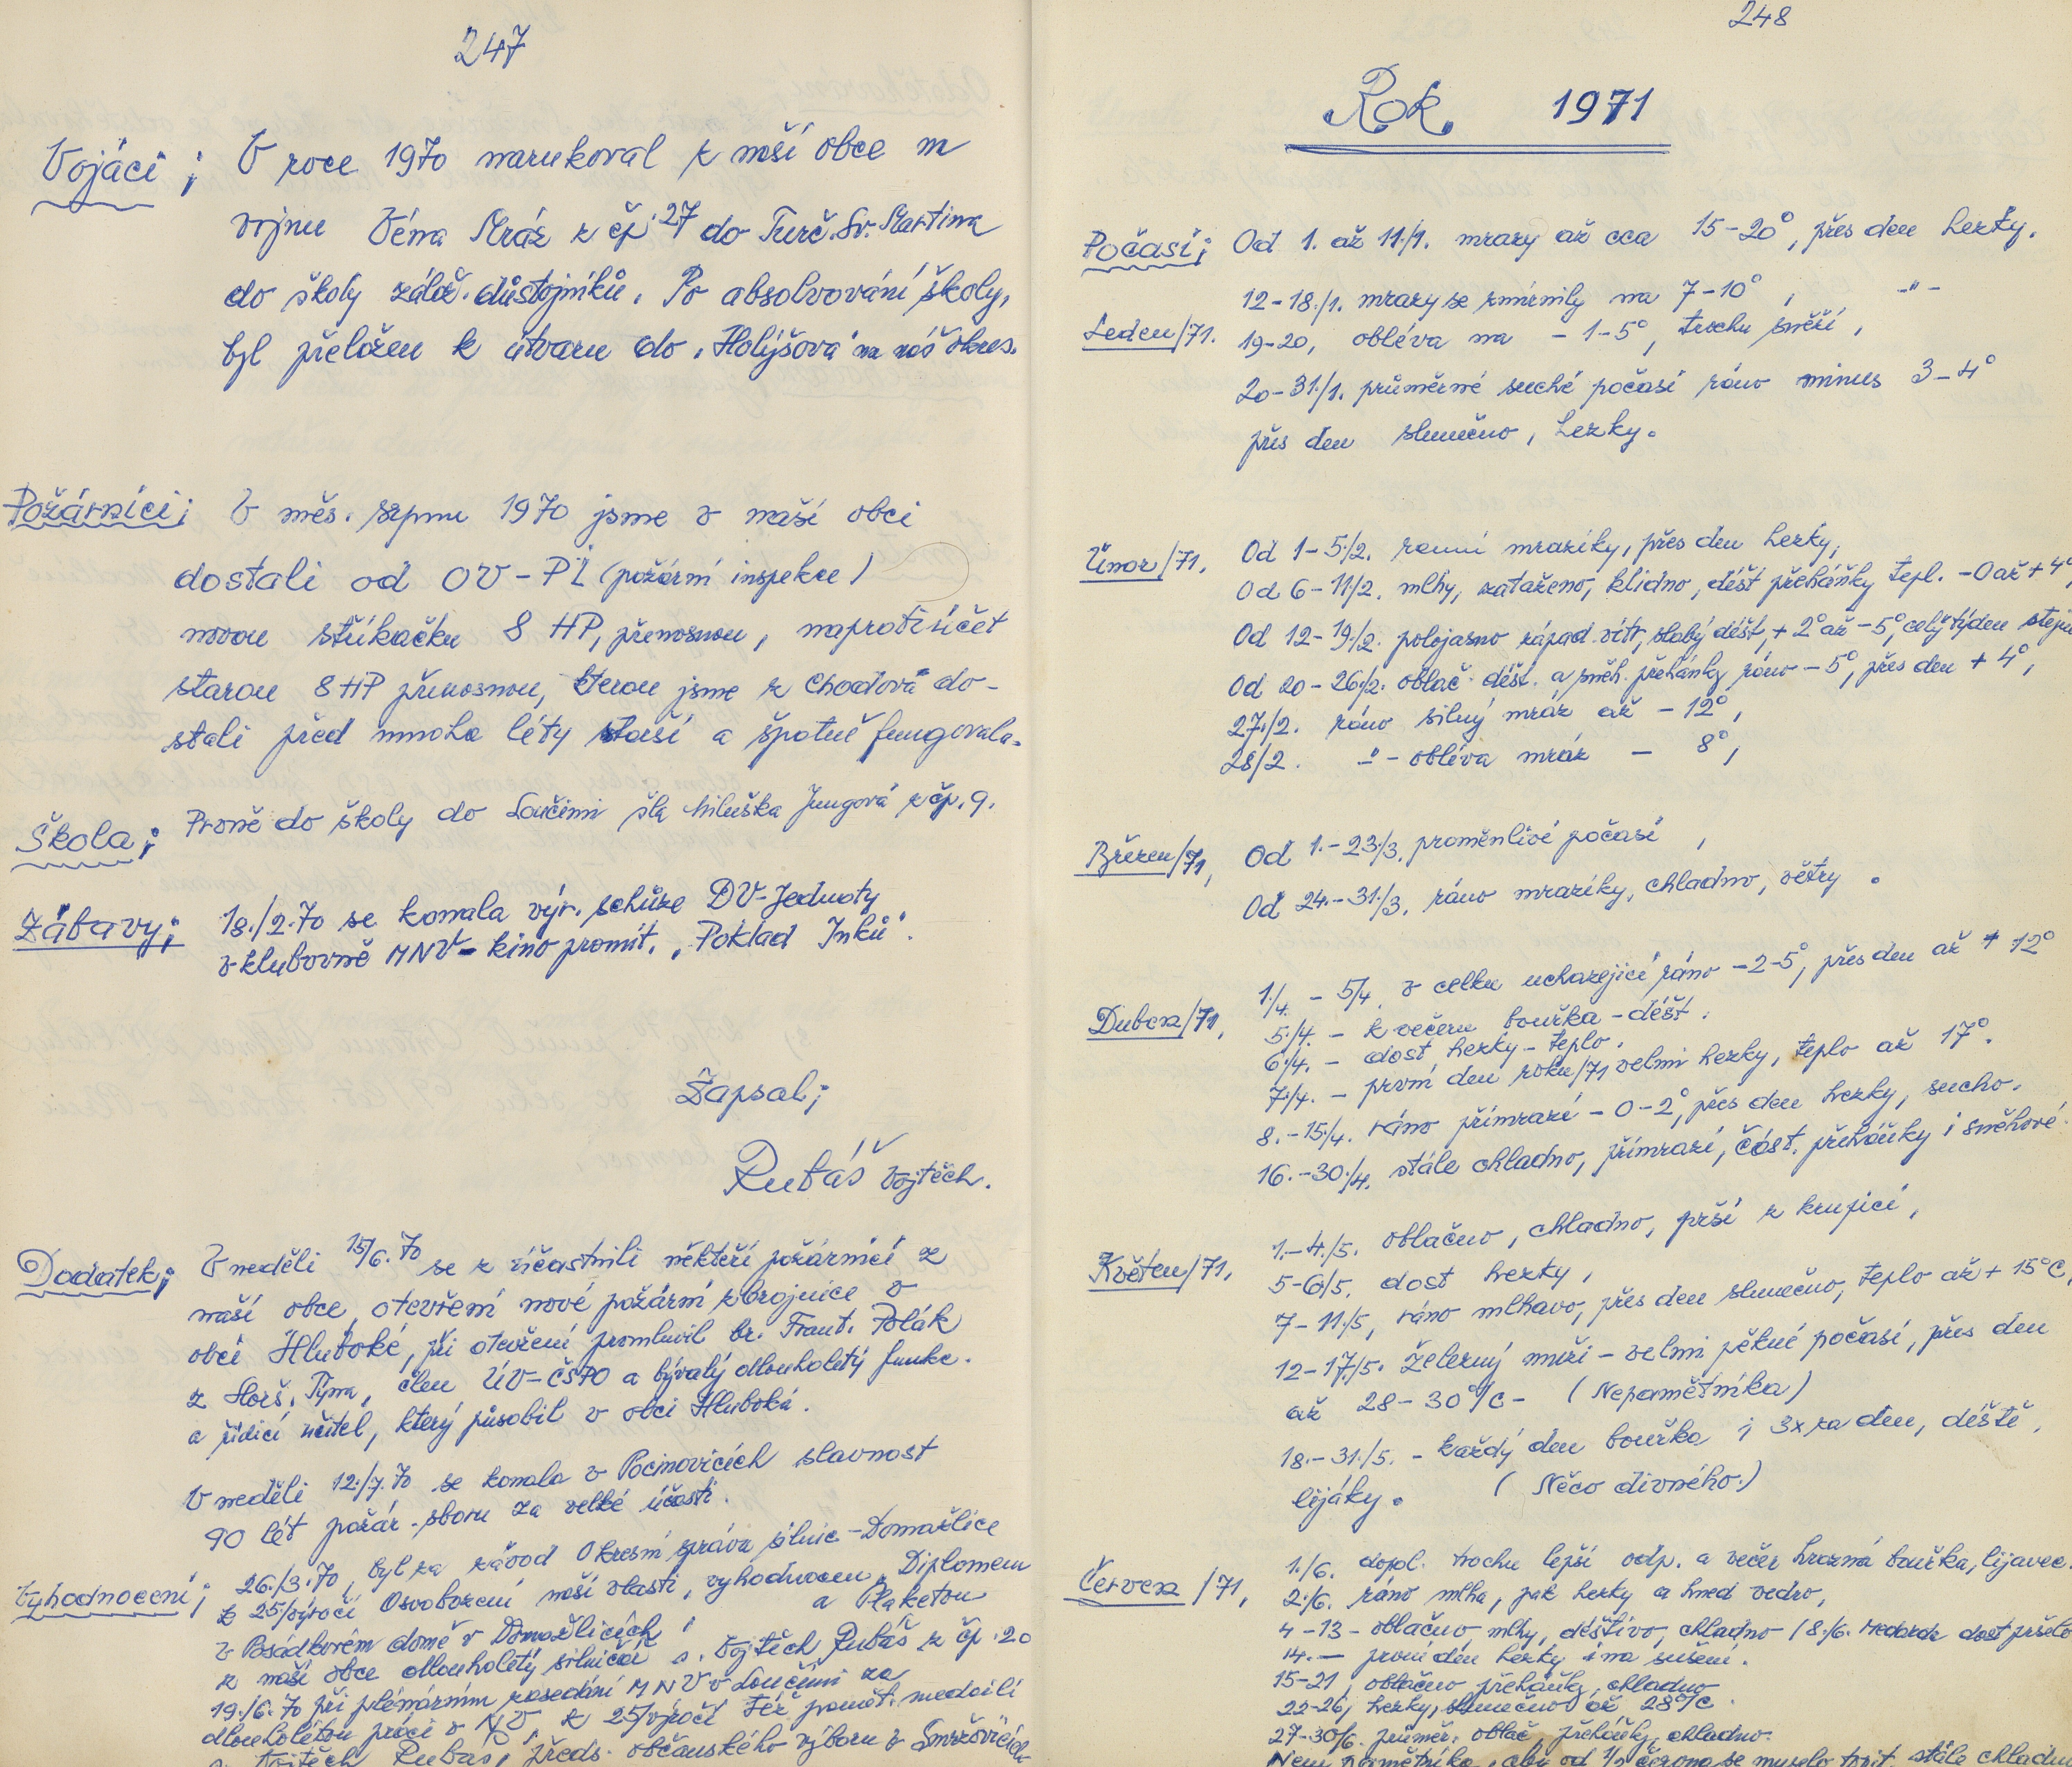 247
Vojáci; V roce 1970 narukoval z naší obce na
vojnu Véna Mráz z čp. 27 do Turč. Sv. Martina
do školy zálož. důstojníků. Po absolvování školy,
byl přeložen k útvaru do „Holýšova" na náš okres.
Požárníci; V měs. srpnu 1970 jsme v naší obci
dostali od OV-PI (požární inspekce)
novou stříkačku 8 HP, přenosnou, naprotisíčet
starou 8 HP přenosnou, kterou jsme z Chodova do-
stali před mnoha léty starší a špatně fungovala.
Škola; Prvně do školy do Loučimi šla Miluška Jungová z čp. 9.
Zábavy; 18./2.70 se konala výr. schůze DV-Jednoty
v klubovně MNV - kino promít. „Poklad Inků".
Zapsal;
Rubáš Vojtěch.
Dodatek; V neděli 15/6.70 se z účastnili někteří požárníci z
naší obce, otevření nové požární zbrojnice v
obci Hluboké, při otevření promluvil br. Frant. Polák
z Horš. Týna, člen ÚV-ČSPO a bývalý dlouholetý funkc.
a řídící učitel, který působil v obci Hluboká.
V neděli 12./7.70 se konala v Pocinovicích slavnost
90 lét požár. sboru za velké účasti.
Vyhodnocení; 26./3.70, byl za závod Okresní správa silnic - Domažlice
k 25/výročí Osvobození naší vlasti, vyhodnocen „Diplomem
a Plaketou
v Posádkovém domě v Domažlicích,
z naší obce dlouholetý silničář s. Vojtěch Rubáš z čp. 20
19./6.70 při plénárním zasedání MNV v Loučimi za
dlouholétou práci v NV k 25/výročí též pamět. medailí
s. Vojtěch Rubáš, předs. občanského výboru v Smržovicích
248
Rok 1971
Počasí; Od 1. až 11./1. mrazy až cca 15-20°, přes den hezky.
12-18./1. mrazy se zmírnily na 7-10°, -"-
Leden/71. 19-20, obléva na - 1-5°, trochu sněží,
20-31./1. průměrné suché počasí ráno minus 3-4°
přes den slunečno, hezky.
Únor/71. Od 1-5./2. ranní mrazíky, přes den hezky,
Od 6-11/2. mlhy, zataženo, klidno, déšť přeháňky tepl. -0 až +4°,
Od 12-19./2. polojasno západ. vítr, slabý déšť, +2° až -5°, celý týden stejné
Od 20-26./2. oblač. déšť. a sněh. přehánky ráno -5°, přes den +4°,
27./2. ráno silný mráz až -12°,
28/2. -"- obléva mráz - 8°,
Březen/71, Od 1.-23./3. proměnlivé počasí,
Od 24.-31./3. ráno mrazíky, chladno, větry.
1./4. - 5/4. v celku ucházející ráno -2-5°, přes den až + 12°
Duben/71, 5./4. - k večeru bouřka - déšť.
6./4. - dost hezky - teplo.
7./4. - první den roku/71 velmi hezky, teplo až 17°.
8.-15./4. ráno přímrazí -0-2°, přes den hezky, sucho.
16.-30./4. stále chladno, přímrazí, část. přeháňky i sněhové.
Květen/71, 1.-4./5. oblačno, chladno, prší z krupicí,
5-6/5. dost hezky,
7-11./5, ráno mlhavo, přes den slunečno, teplo až + 15°C,
12-17/5. Železný muži - velmi pěkné počasí, přes den
až 28-30°/C - (Nepamětníka)
18.-31./5. - každý den bouřka i 3x za den, déště,
lijáky. (Něco divného.)
Červen/71, 1./6. dopol. trochu lepší odp. a večer hrozná bouřka, lijavec.
2./6. ráno mlha, pak hezky a hned vedro,
4-13 - oblačno, mlhy, déštivo, chladno (8./6. Medarda dost pršelo
14. - první den hezky i na sušení.
15-21, oblačno přeháňky, chladno
22-26, hezky, slunečno až 28°/C.
27-30/6. průměr. oblač. přeháňky, chladno.
Není pamětníka, aby od 1/2 června se muselo topit, stále chladno